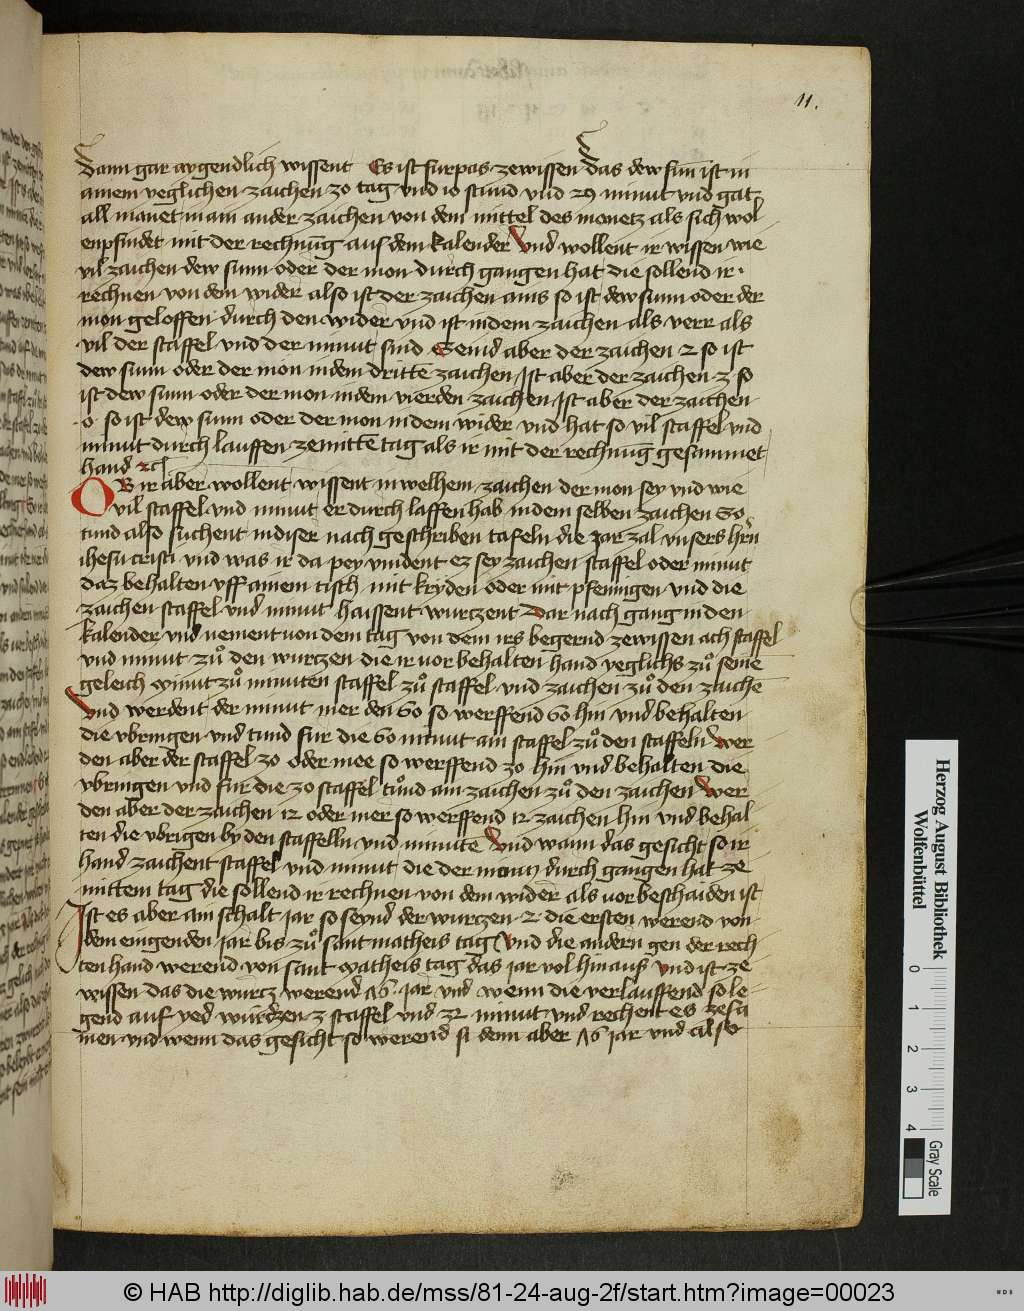 11.
dann gar aygendlich wissent Es ist furpas zewissen das dew sunn ist in
ainem yeglichen zaichen 30 tag vnd 10 stund vnd 29 minut vnd gat
all monet in ain ander zaichen von dem mittel des monetz als sich wol
enpfindet mit der rechnūg aus dem kalender Vnd wollent ir wissen wie
vil zaichen dew sunn oder der mon durch gangen hat die sollend ir
rechnen von dem wider also ist der zaichen ains so ist dew sunn oder der
mon geloffen durch den wider vnd ist in dem zaichen als verr als
vil der staffel vnd der minut sind Seind aber der zaichen 2 so ist
dew sunn oder der mon in dem drittē zaichen Ist aber der zaichen 3 so
ist dew sunn oder der mon in dem vierden zaichen Ist aber der zaichen
0 so ist dew sunn oder der mon in dem wider vnd hat so vil staffel vnd
minut durch lauffen ze mittē tag als ir mit der rechnūg gesammet
hand etc
OB ir aber wollent wissent in welhem zaichen der mon sey vnd wie
vil staffel vnd minut er durch laffen hab in dem selben zaichen So
tund also suchent in diser nach geschriben tafeln die jar zal vnsers hrñ
ihesu cristi vnd was ir da pey vindent ez sey zaichen staffel oder minut
daz behalten vff ainem tisch mit kryden oder mit pfennigen vnd die
zaichen staffel vnd minut haissent wurczent Dar nach gang in den
kalender vnd nement von dem tag von dem irs begernd zewissen ach staffel
vnd minut zů den wurtzen die ir vor behalten hand yeglichs zů seine
geleich minut zů minuten staffel zů staffel vnd zaichen zů den zaichē
Vnd werdent der minut mer den 60 so werffend 60 hin vnd behalten
die vbringen vnd tund fur die 60 minut ain staffel zů den staffeln Wer
den aber der staffel 30 oder mee so werffend 30 hin vnd behalten die
vbringen vnd fur die 30 staffel tůnd ain zaichen zů den zaichen Wer
den aber der zaichen 12 oder mer so werffend 12 zaichen hin vnd behal
ten die vbrigen by den staffelln vnd minute Vnd wann das gesicht so ir
hand zaichent staffel vnd minut die der mon durch gangen hat ze
mittem tag die sollend ir rechnen von dem wider als vor beschaiden ist
Ist es aber ain schalt jar so seynd der wurczen 2 die ersten werend von
dem eingenden jar bis zů sant matheis tag Vnd die andern gen der rech
ten hand werend von sant Matheis tag das jar vol hinaus vnd ist ze
wissen das die wurcz werend 76 jar vnd wenn die verlauffend so le
gend auf yed wurczen 3 staffel vnd 32 minut vnd rechent es zesā
men vnd wenn das gesicht so werend si denn aber 76 jar vnd also
Herzog August Bibliothek
Wolfenbüttel
0 1 2 3 4
Gray Scale
© HAB http://diglib.hab.de/mss/81-24-aug-2f/start.htm?image=00023